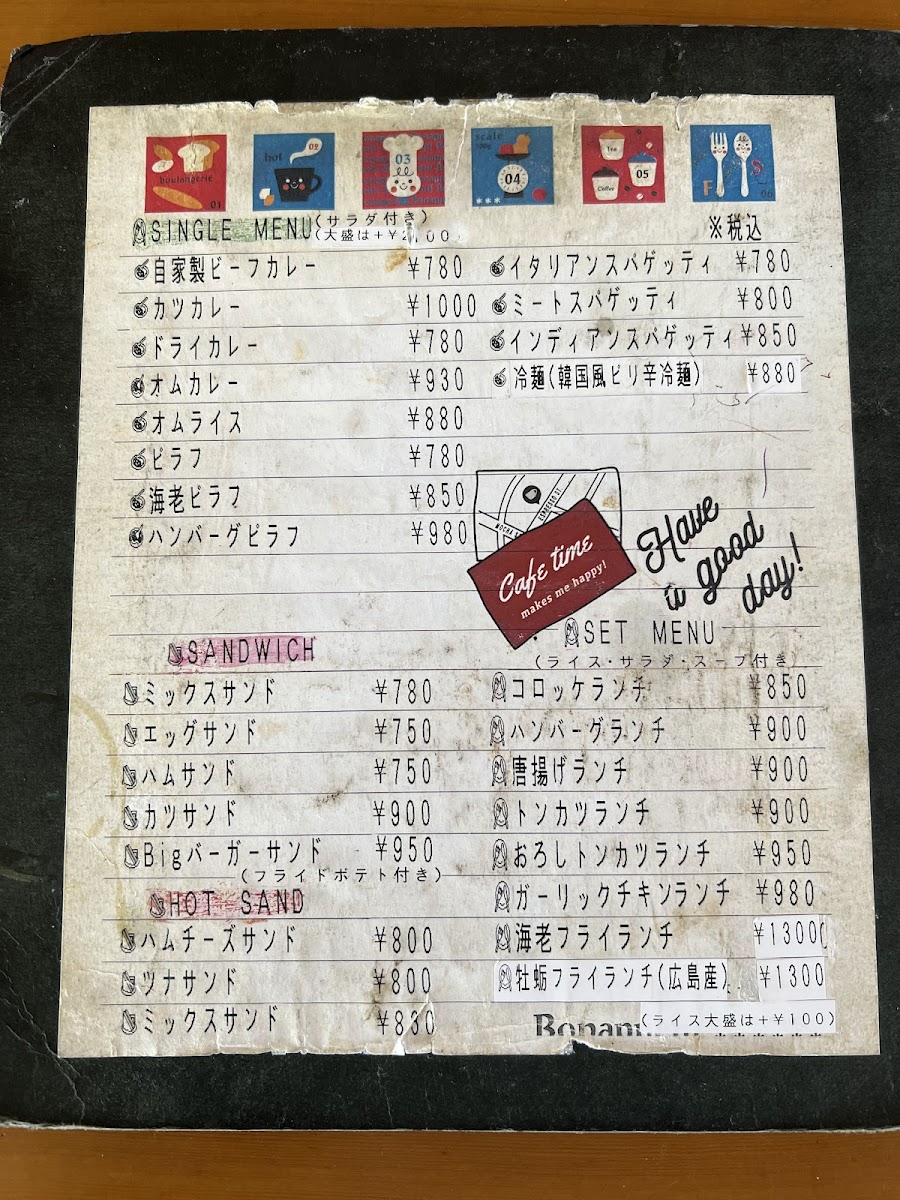 boulangerie
01
hot
02
03
scale
100g
04
Tea
Coffee
05
F S
06
SINGLE MENU(サラダ付き)
(大盛は+¥200)
※税込
自家製ビーフカレー ¥780
カツカレー ¥1000
ドライカレー ¥780
オムカレー ¥930
オムライス ¥880
ピラフ ¥780
海老ピラフ ¥850
ハンバーグピラフ ¥980
イタリアンスパゲッティ ¥780
ミートスパゲッティ ¥800
インディアンスパゲッティ ¥850
冷麺(韓国風ピリ辛冷麺) ¥880
MOCHA
ESPRESSO ST
Cafe time
makes me happy!
Have
a good
day!
SANDWICH
ミックスサンド ¥780
エッグサンド ¥750
ハムサンド ¥750
カツサンド ¥900
Bigバーガーサンド ¥950
(フライドポテト付き)
HOT SAND
ハムチーズサンド ¥800
ツナサンド ¥800
ミックスサンド ¥830
SET MENU
(ライス・サラダ・スープ付き)
コロッケランチ ¥850
ハンバーグランチ ¥900
唐揚げランチ ¥900
トンカツランチ ¥900
おろしトンカツランチ ¥950
ガーリックチキンランチ ¥980
海老フライランチ ¥1300
牡蛎フライランチ(広島産) ¥1300
(ライス大盛は+¥100)